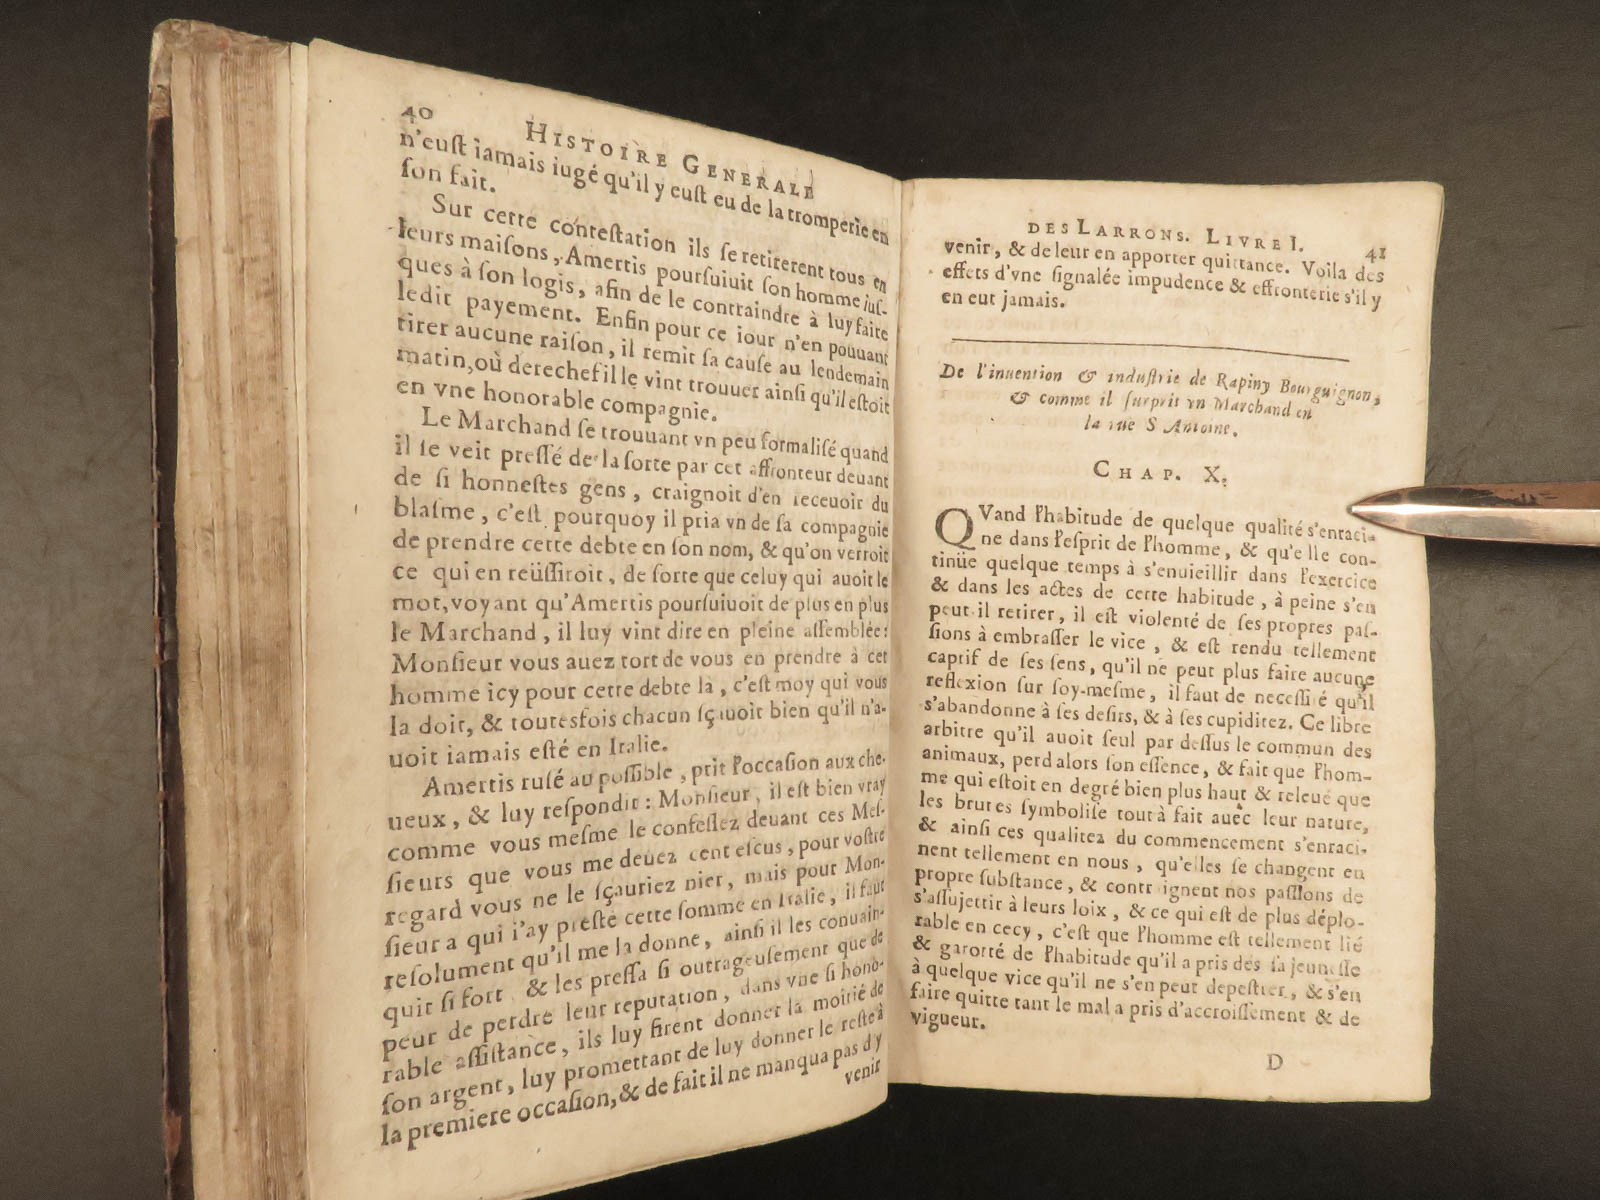 40 HISTOIRE GENERALE
n'euſt iamais iugé qu'il y euſt eu de la tromperie en
ſon fait.
Sur cette conteſtation ils ſe retirerent tous en
leurs maiſons, Amertis pourſuiuit ſon homme iuſ-
ques à ſon logis, afin de le contraindre à luy faire
ledit payement. Enfin pour ce iour n'en pouuant
tirer aucune raiſon, il remit ſa cauſe au lendemain
matin, où derechef il le vint trouuer ainſi qu'il eſtoit
en vne honorable compagnie.
Le Marchand ſe trouuant vn peu formaliſé quand
il ſe veit preſſé de la ſorte par cet affronteur deuant
de ſi honneſtes gens, craignoit d'en receuoir du
blaſme, c'eſt pourquoy il pria vn de ſa compagnie
de prendre cette debte en ſon nom, & qu'on verroit
ce qui en reüſſiroit, de ſorte que celuy qui auoit le
mot, voyant qu'Amertis pourſuiuoit de plus en plus
le Marchand, il luy vint dire en pleine aſſemblée:
Monſieur vous auez tort de vous en prendre à cet
homme icy pour cette debte là, c'eſt moy qui vous
la doit, & toutesfois chacun ſçauoit bien qu'il n'a-
uoit iamais eſté en Italie.
Amertis ruſé au poſſible, prit l'occaſion aux che-
ueux, & luy reſpondit: Monſieur, il eſt bien vray
comme vous meſme le confeſſez deuant ces Meſ-
ſieurs que vous me deuez cent eſcus, pour voſtre
regard vous ne le ſçauriez nier, mais pour Mon-
ſieur a qui i'ay preſté cette ſomme en Italie, il faut
reſolument qu'il me la donne, ainſi il les conuain-
quit ſi fort & les preſſa ſi outrageuſement que de
peur de perdre leur reputation, dans vne ſi hono-
rable aſſiſtance, ils luy firent donner la moitié de
ſon argent, luy promettant de luy donner le reſte à
la premiere occaſion, & de fait il ne manqua pas d'y
venir
DES LARRONS. LIVRE I. 41
venir, & de leur en apporter quittance. Voila des
effets d'vne ſignalée impudence & effronterie s'il y
en eut jamais.
De l'inuention & induſtrie de Rapiny Bourguignon,
& comme il ſurprit vn Marchand en
la rue S Antoine.
CHAP. X.
QVand l'habitude de quelque qualité s'enraci-
ne dans l'eſprit de l'homme, & qu'elle con-
tinüe quelque temps à s'enuieillir dans l'exercice
& dans les actes de cette habitude, à peine s'en
peut il retirer, il eſt violenté de ſes propres paſ-
ſions à embraſſer le vice, & eſt rendu tellement
captif de ſes ſens, qu'il ne peut plus faire aucune
reflexion ſur ſoy-meſme, il faut de neceſſité qu'il
s'abandonne à ſes deſirs, & à ſes cupiditez. Ce libre
arbitre qu'il auoit ſeul par deſſus le commun des
animaux, perd alors ſon eſſence, & fait que l'hom-
me qui eſtoit en degré bien plus haut & releué que
les brutes ſymboliſe tout à fait auec leur nature,
& ainſi ces qualitez du commencement s'enraci-
nent tellement en nous, qu'elles ſe changent en
propre ſubſtance, & contraignent nos paſſions de
s'aſſujettir à leurs loix, & ce qui eſt de plus déplo-
rable en cecy, c'eſt que l'homme eſt tellement lié
& garotté de l'habitude qu'il a pris dés ſa jeuneſſe
à quelque vice qu'il ne s'en peut depeſtrer, & s'en
faire quitte tant le mal a pris d'accroiſſement & de
vigueur.
D